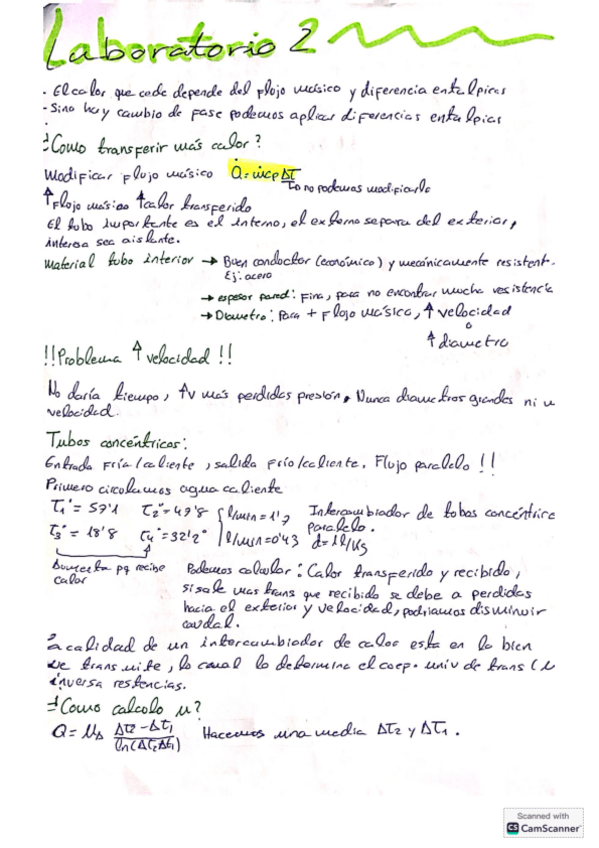 Laboratorio 2
· El calor que cede depende del flujo másico y diferencia entalpias
· Si no hay cambio de fase podemos aplicar diferencias entalpias
¿Como transferir más calor?
Modificar flujo másico Q̇ = ṁcpΔT
↳ no podemos modificarlo
↑ Flujo másico ↑ calor transferido
El tubo importante es el interno, el externo separa del exterior,
interesa sea aislante.
Material tubo interior → Buen conductor (económico) y mecánicamente resistent.
Ej: acero
→ espesor pared: Fina, para no encontrar mucha resistencia
→ Diametro: Para + Flujo másico, ↑ velocidad
o
↑ diametro
!!Problema ↑ velocidad !!
No daría tiempo, ↑v más perdidas presión, Nunca diametros grandes ni v
velocidad.
Tubos concéntricos:
Entrada Fría/caliente, salida frío/caliente. Flujo paralelo !!
Primero circulamos agua caliente
T1° = 57'1 T2° = 49'8 l/min = 1'7 Intercambiador de tobos concéntrico
paralelo.
T3° = 18'8 T4° = 32'2° l/min = 0'43 d = 1l/kg
Aumenta pq recibe
calor
Podemos calcular: Calor transferido y recibido,
si sale mas trans que recibido se debe a perdidas
hacia el exterior y velocidad, podriamos disminuir
caudal.
la calidad de un intercambiador de calor esta en lo bien
que transmite, lo cual lo determina el coep. univ de trans (u
inversa restencias.
¿Como calculo u?
Q = UA ΔT2 - ΔT1 / ln(ΔT2/ΔT1) Hacemos una media ΔT2 y ΔT1.
Scanned with
CS CamScanner